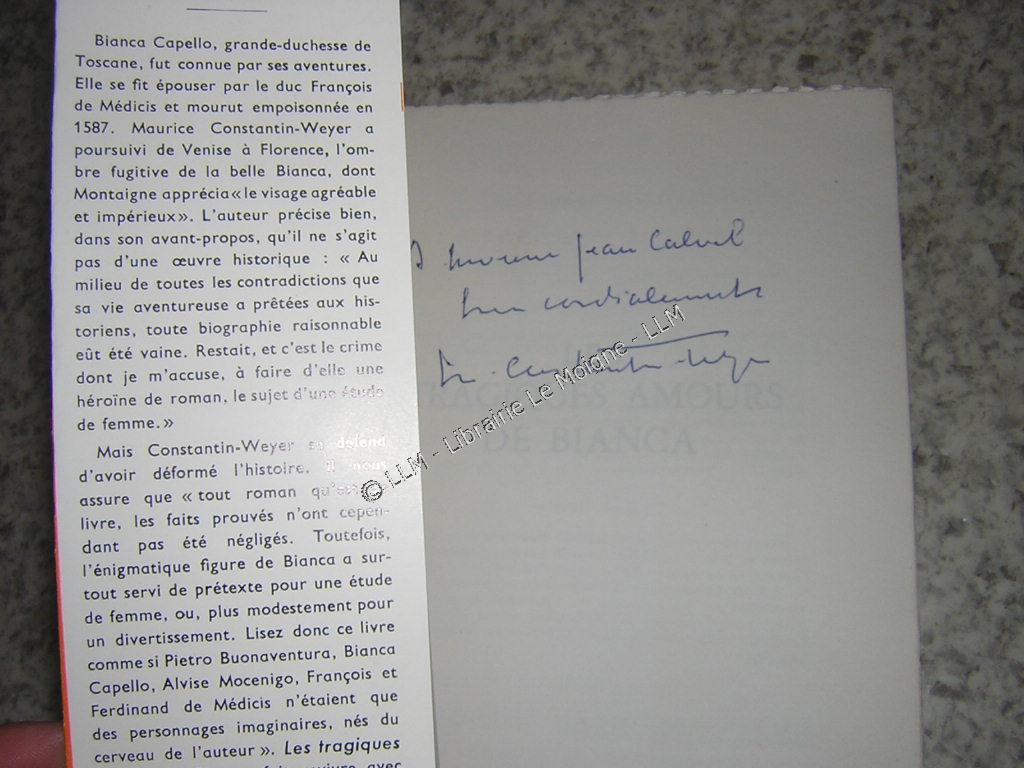 Bianca Capello, grande-duchesse de
Toscane, fut connue par ses aventures.
Elle se fit épouser par le duc François
de Médicis et mourut empoisonnée en
1587. Maurice Constantin-Weyer a
poursuivi de Venise à Florence, l'om-
bre fugitive de la belle Bianca, dont
Montaigne apprécia « le visage agréable
et impérieux ». L'auteur précise bien,
dans son avant-propos, qu'il ne s'agit
pas d'une œuvre historique : « Au
milieu de toutes les contradictions que
sa vie aventureuse a prêtées aux his-
toriens, toute biographie raisonnable
eût été vaine. Restait, et c'est le crime
dont je m'accuse, à faire d'elle une
héroïne de roman, le sujet d'une étude
de femme. »
Mais Constantin-Weyer se défend
d'avoir déformé l'histoire. Il nous
assure que « tout roman
livre, les faits prouvés n'ont cepen-
dant pas été négligés. Toutefois,
l'énigmatique figure de Bianca a sur-
tout servi de prétexte pour une étude
de femme, ou, plus modestement pour
un divertissement. Lisez donc ce livre
comme si Pietro Buonaventura, Bianca
Capello, Alvise Mocenigo, François et
Ferdinand de Médicis n'étaient que
des personnages imaginaires, nés du
cerveau de l'auteur ». Les tragiques
A Monsieur Jean Calvel
bien cordialement
M. Constantin-Weyer
LES
TRAGIQUES AMOURS
DE BIANCA
© LLM - Librairie Le Moigne - LLM